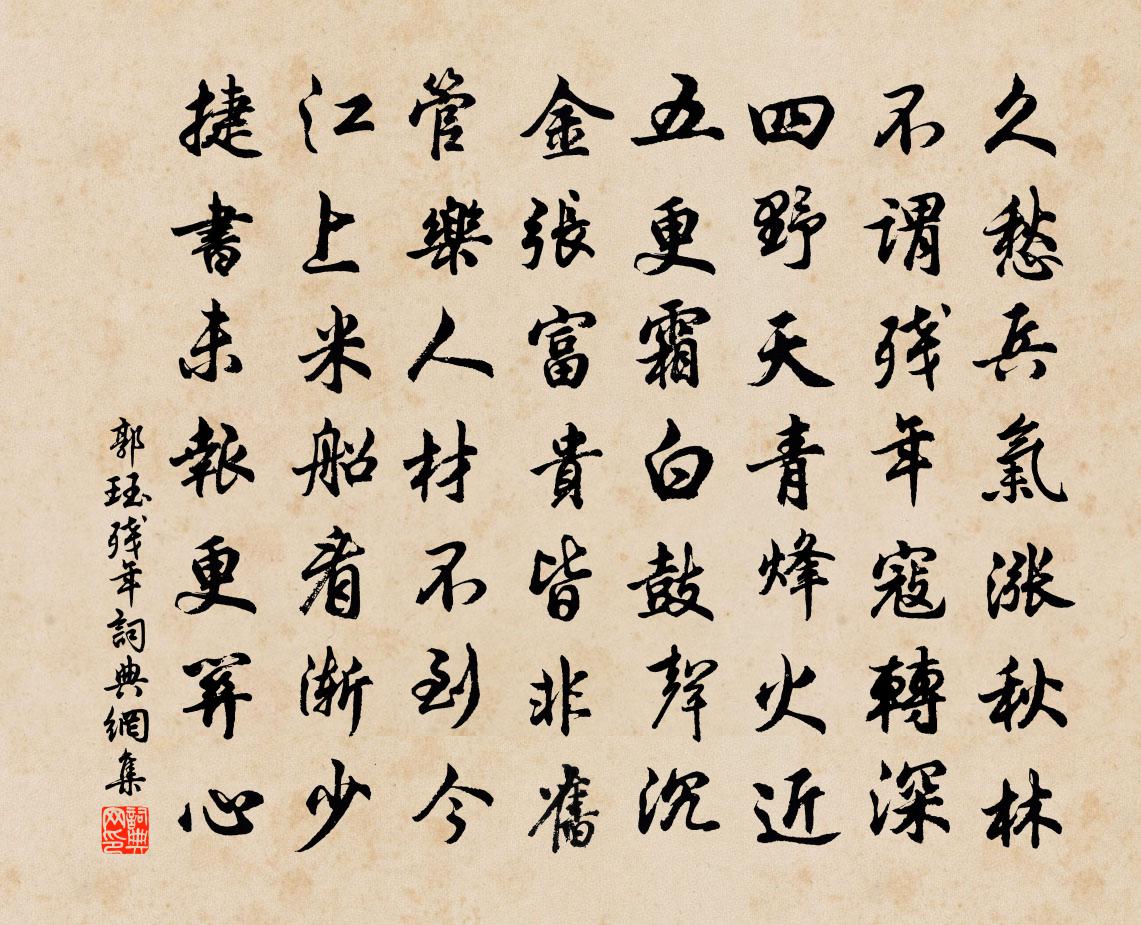 久愁兵氣漲秋林
不謂残年寇轉深
四野天青烽火近
五更霜白鼓聲沉
金張富貴皆非舊
管樂人材不到今
江上米船看漸少
捷書未報更關心
郭珏残年詞典網集
詞典網印